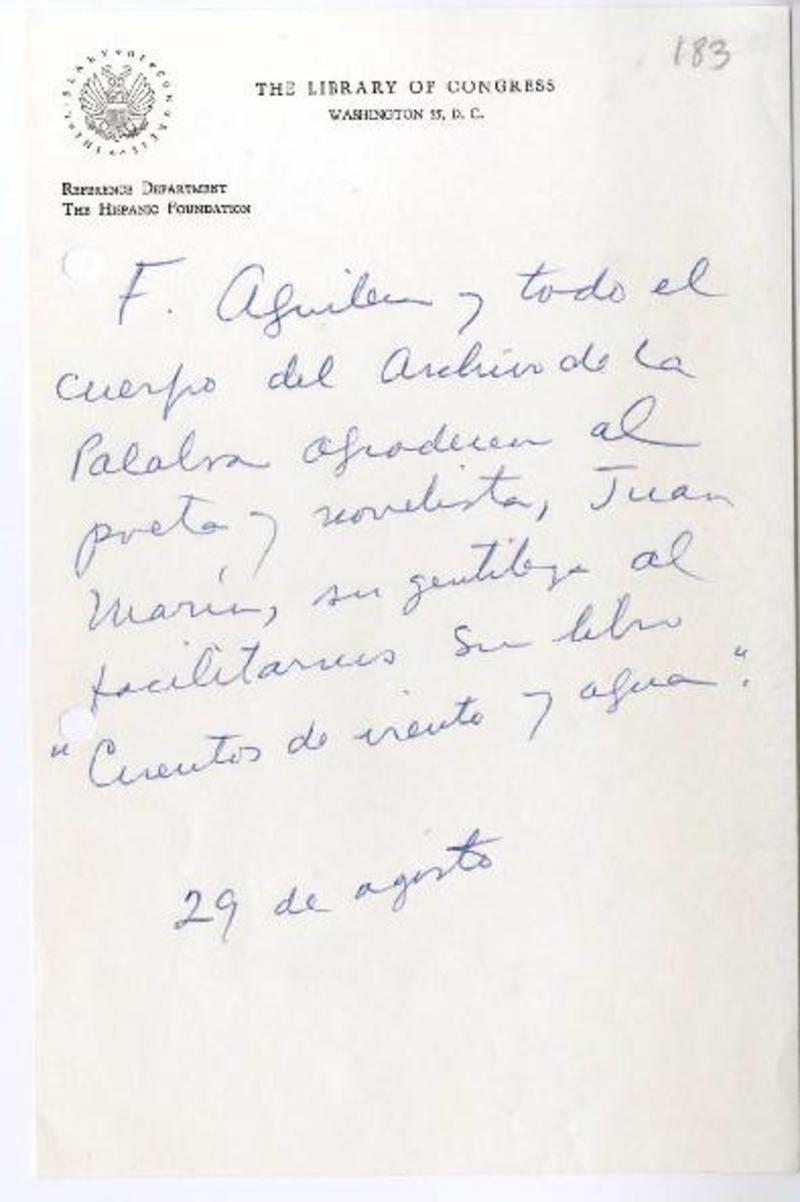 183
THE LIBRARY OF CONGRESS
WASHINGTON 25, D. C.
REFERENCE DEPARTMENT
THE HISPANIC FOUNDATION
F. Aguilera y todo el
cuerpo del Archivo de la
Palabra agradecen al
poeta y novelista, Juan
Marín, su gentileza al
facilitarnos su libro
"Cuentos de viento y agua".
29 de agosto